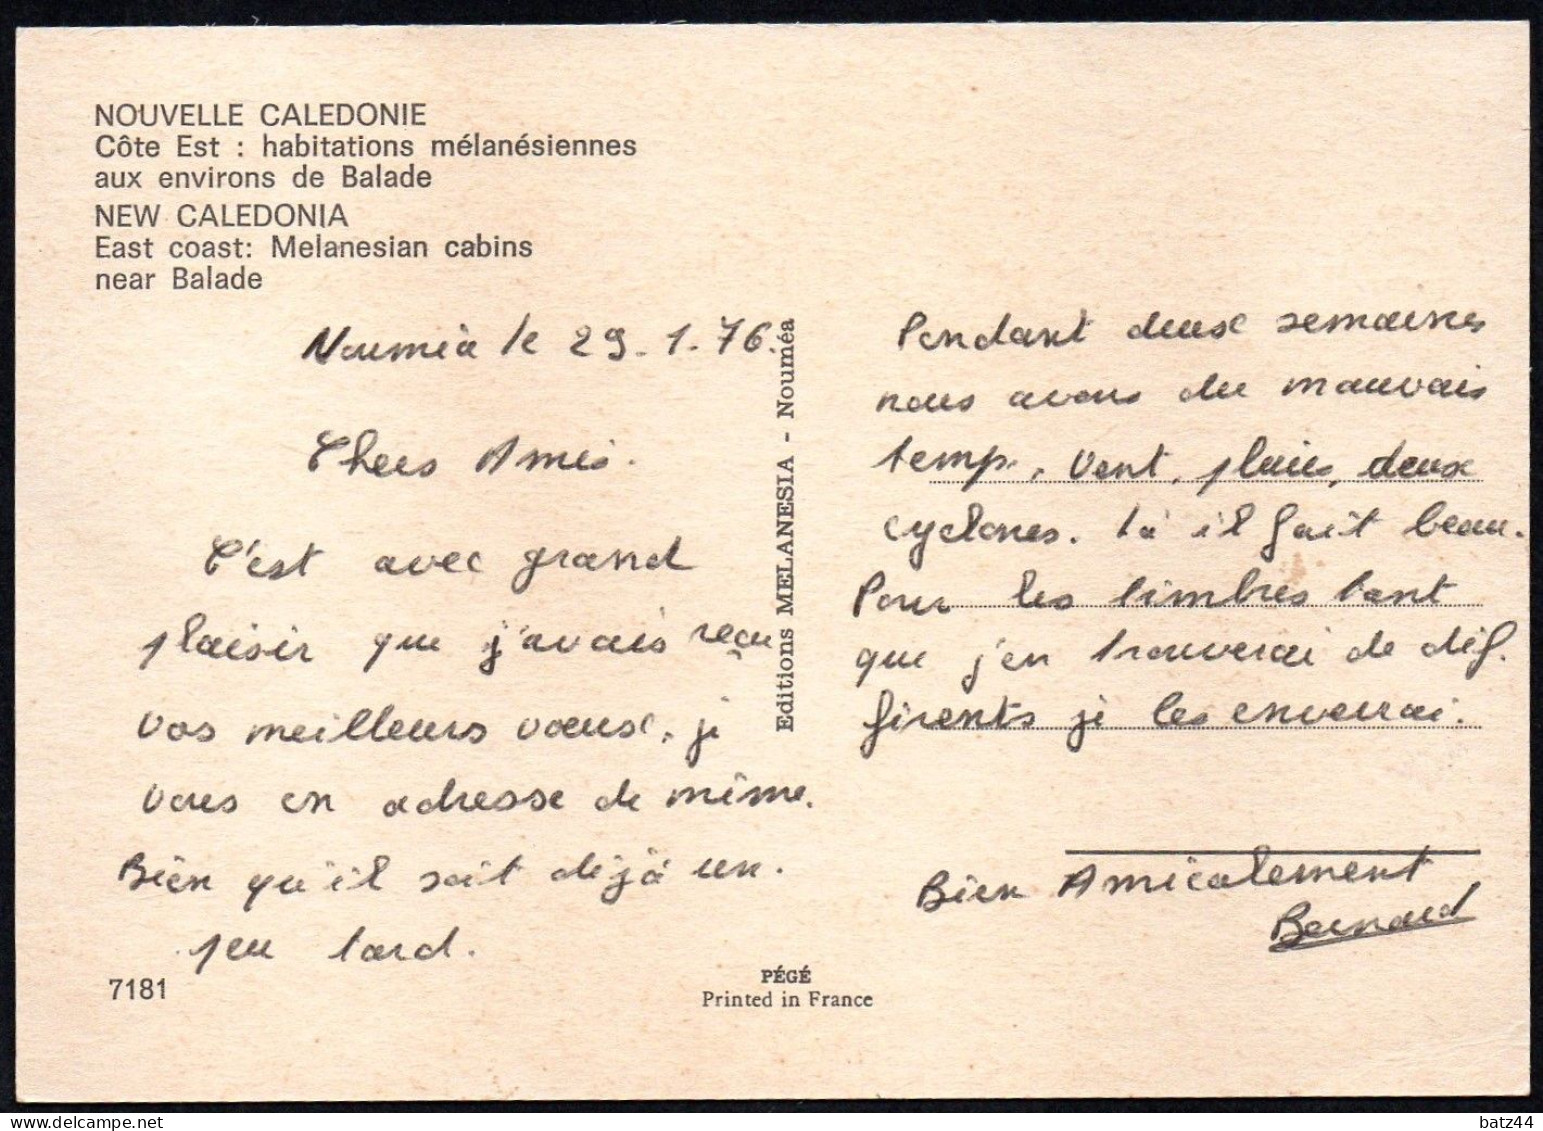 NOUVELLE CALEDONIE
Côte Est : habitations mélanésiennes
aux environs de Balade
NEW CALEDONIA
East coast: Melanesian cabins
near Balade
Nouméa le 29.1.76.
Chers Amis.
C'est avec grand
plaisir que j'avais reçu
vos meilleurs vœux, je
vous en adresse de même.
Bien qu'il soit déjà un.
peu tard.
7181
Editions MELANESIA - Nouméa
PÉGÉ
Printed in France
Pendant deux semaines
nous avons du mauvais
temp, vent, pluie, deux
cyclones. Là il fait beau.
Pour les timbres tant
que j'en trouverai de dif.
férents je les enverrai.
Bien Amicalement
Bernard
batz44